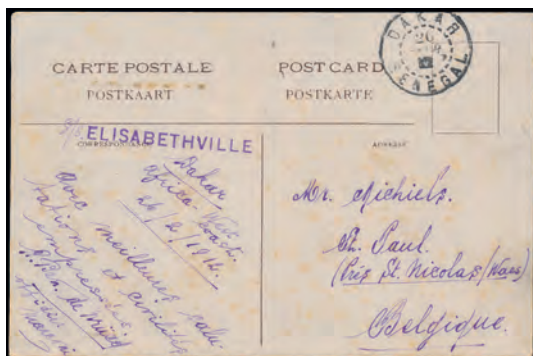 CARTE POSTALE
POSTKAART
POST CARD
POSTKARTE
DAKAR
SENEGAL
S/S. ELISABETHVILLE
CORRESPONDANCE
ADRESSE
Dakar
Africa West
Coast.
Avec meilleures salu-
tations et
empressées.
Mr. Michiels.
St. Paul.
(Près St. Nicolas (Waes)
Belgique.